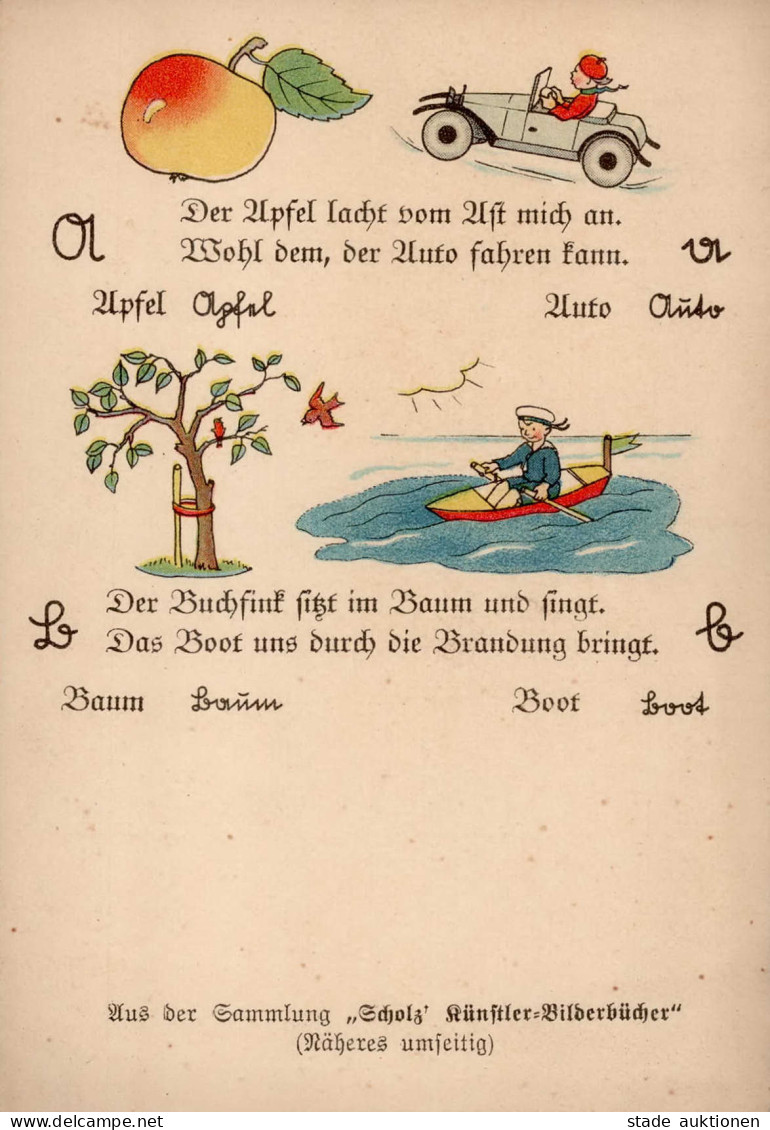 Der Apfel lacht vom Ast mich an.
A Wohl dem, der Auto fahren kann. A
Apfel Apfel Auto Auto
Der Buchfink sitzt im Baum und singt.
B Das Boot uns durch die Brandung bringt. B
Baum Baum Boot Boot
Aus der Sammlung „Scholz' Künstler-Bilderbücher“
(Näheres umseitig)
delcampe.net stade auktionen